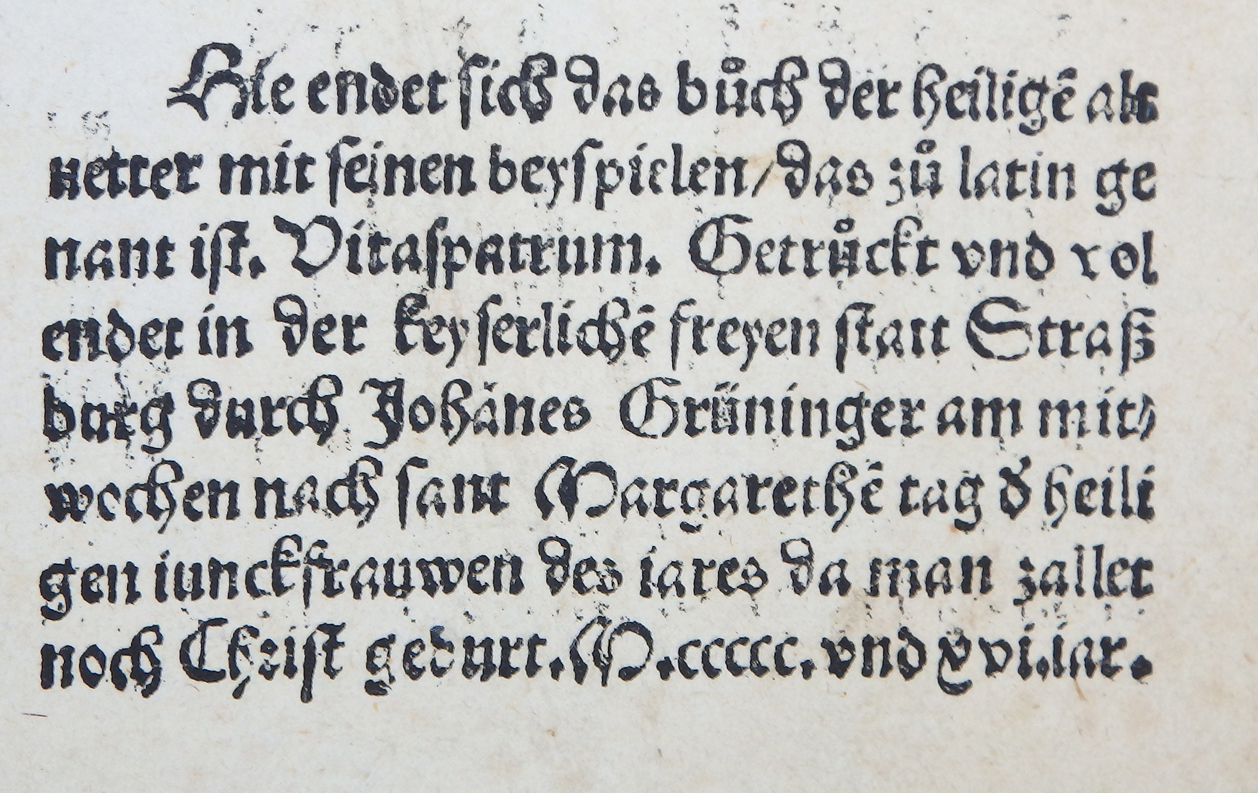 Hie endet sich das bůch der heiligē alt
uetter mit seinen beyspielen/das zů latin ge
nant ist. Vitaspatrum. Getrůckt vnd vol
endet in der keyserlichē freyen statt Straß
burg durch Johānes Grüninger am mit⸗
wochen nach sant Margarethē tag d̕ heili
gen iunckfrauwen des iares da man zallet
noch Christ geburt.M.ccccc.vnd xvi.iar.